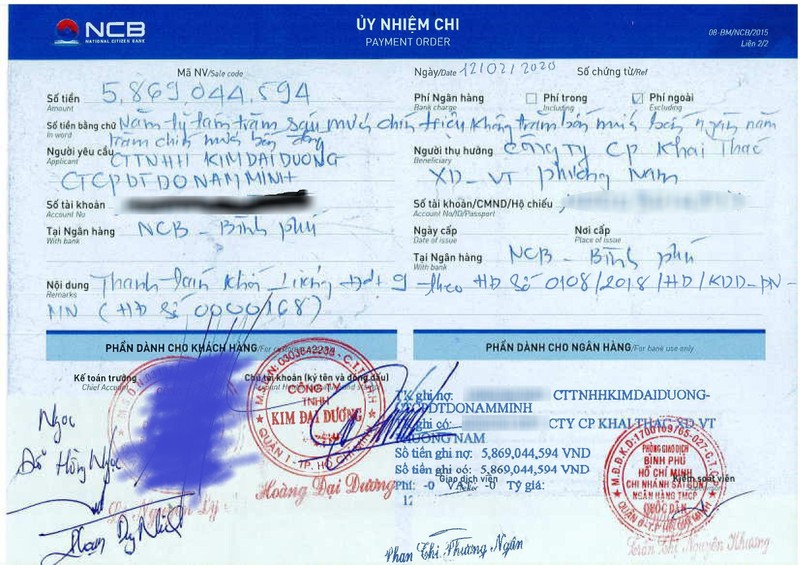 NCB
NATIONAL CITIZEN BANK
ỦY NHIỆM CHI
PAYMENT ORDER
08-BM/NCB/2015
Liên 2/2
Mã NV/Sale code
Ngày/Date 12/02/2020 Số chứng từ/Ref
Số tiền 5,869,044,594
Amount
Phí Ngân hàng Phí trong Phí ngoài
Bank charge Including Excluding
Số tiền bằng chữ Năm tỷ tám trăm sáu mươi chín triệu không trăm bốn mươi bốn ngàn năm
In word
trăm chín mươi bốn đồng
Người yêu cầu CTTNHH KIM DAI DUONG
Applicant
CTCPDTDONAMMINH
Người thụ hưởng Công ty CP Khai Thác
Beneficiary
XD-VT Phương Nam
Số tài khoản
Account No
Số tài khoản/CMND/Hộ chiếu
Account No/ID/Passport
Tại Ngân hàng NCB - Bình phú
With bank
Ngày cấp Nơi cấp
Date of issue Place of issue
Tại Ngân hàng NCB - Bình phú
With bank
Nội dung Thanh toán khối lượng đợt 9 theo HĐ số 0108/2018/HĐ/KDD-PN-
Remarks
MN (HĐ số 0000168)
PHẦN DÀNH CHO KHÁCH HÀNG
PHẦN DÀNH CHO NGÂN HÀNG/For bank use only
Kế toán trưởng
Chief Accountant
Chủ tài khoản (ký tên và đóng dấu)
Ngọc
Đỗ Hồng Ngọc
M.S.D.N: 0303642238 - C.T.T.N.H.H
CÔNG TY
TNHH
KIM ĐẠI DƯƠNG
QUẬN 1 - TP. HỒ CHÍ MINH
Hoàng Đại Dương
TK ghi nợ: CTTNHHKIMDAIDUONG-
CTCPDTDONAMMINH
TK ghi có: CTY CP KHAI THAC XD-VT
PHUONG NAM
Số tiền ghi nợ: 5,869,044,594 VND
Số tiền ghi có: 5,869,044,594 VND
Giao dịch viên
Phí: -0 VAT: -0 Tỷ giá:
Phan Thị Phương Ngân
PHÒNG GIAO DỊCH
BÌNH PHÚ
HỒ CHÍ MINH
CHI NHÁNH SÀI GÒN
NGÂN HÀNG TMCP
QUỐC DÂN
QUẬN 6-T.P HỒ CHÍ MINH
Kiểm soát viên
Trần Thị Nguyên Khương